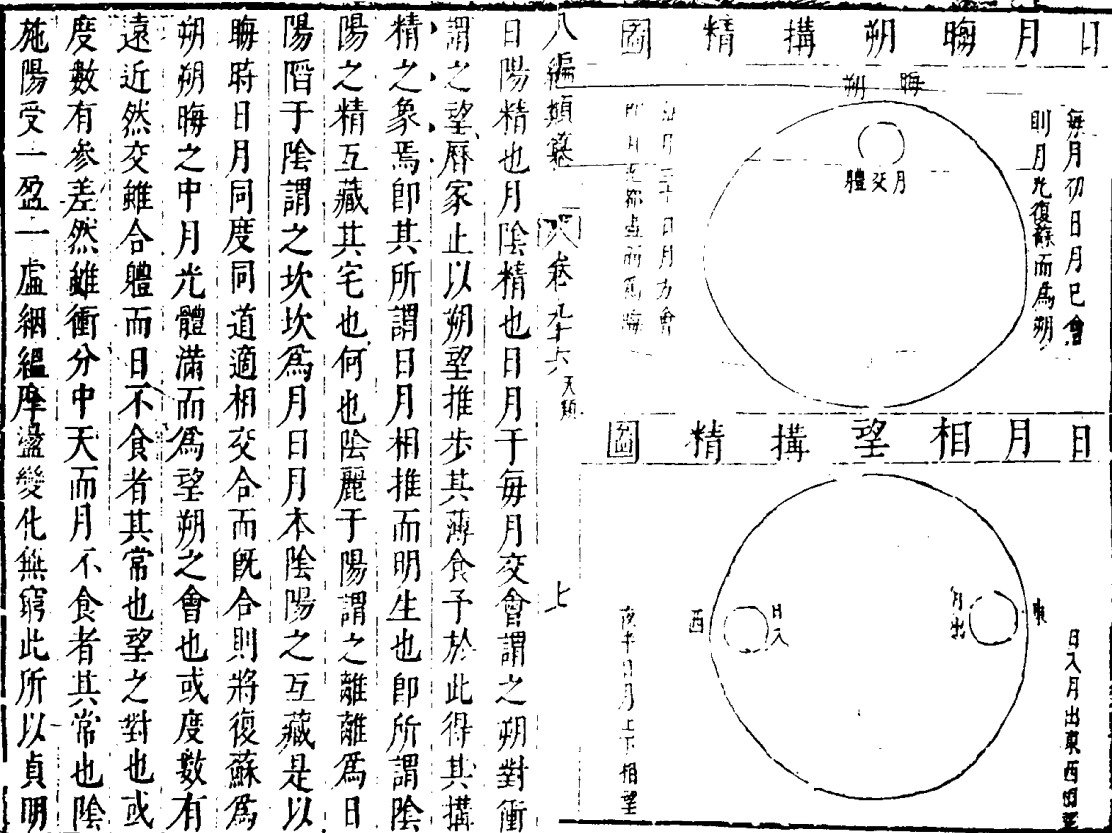 日月晦朔搆精圖
晦朔
每月初日月已會
則月光復蘇而爲朔
月交體
每月三十日月方會
而爲晦
日月相望搆精圖
日入月出東西相望
東
月出
日入
西
夜半日月上下相望
八編類纂
卷九十六
天類
上
日陽精也月陰精也日月于每月交會謂之朔對衝
謂之望曆家止以朔望推步其薄食予於此得其搆
精之象焉卽其所謂日月相推而明生也卽所謂陰
陽之精互藏其宅也何也陰麗于陽謂之離離爲日
陽陷于陰謂之坎坎爲月日月本陰陽之互藏是以
晦時日月同度同道適相交合而旣合則將復蘇爲
朔朔晦之中月光體滿而爲望朔之會也或度數有
遠近然交雖合體而日不食者其常也望之對也或
度數有參差然雖衝分中天而月不食者其常也陰
施陽受一盈一虛絪縕摩盪變化無窮此所以貞明